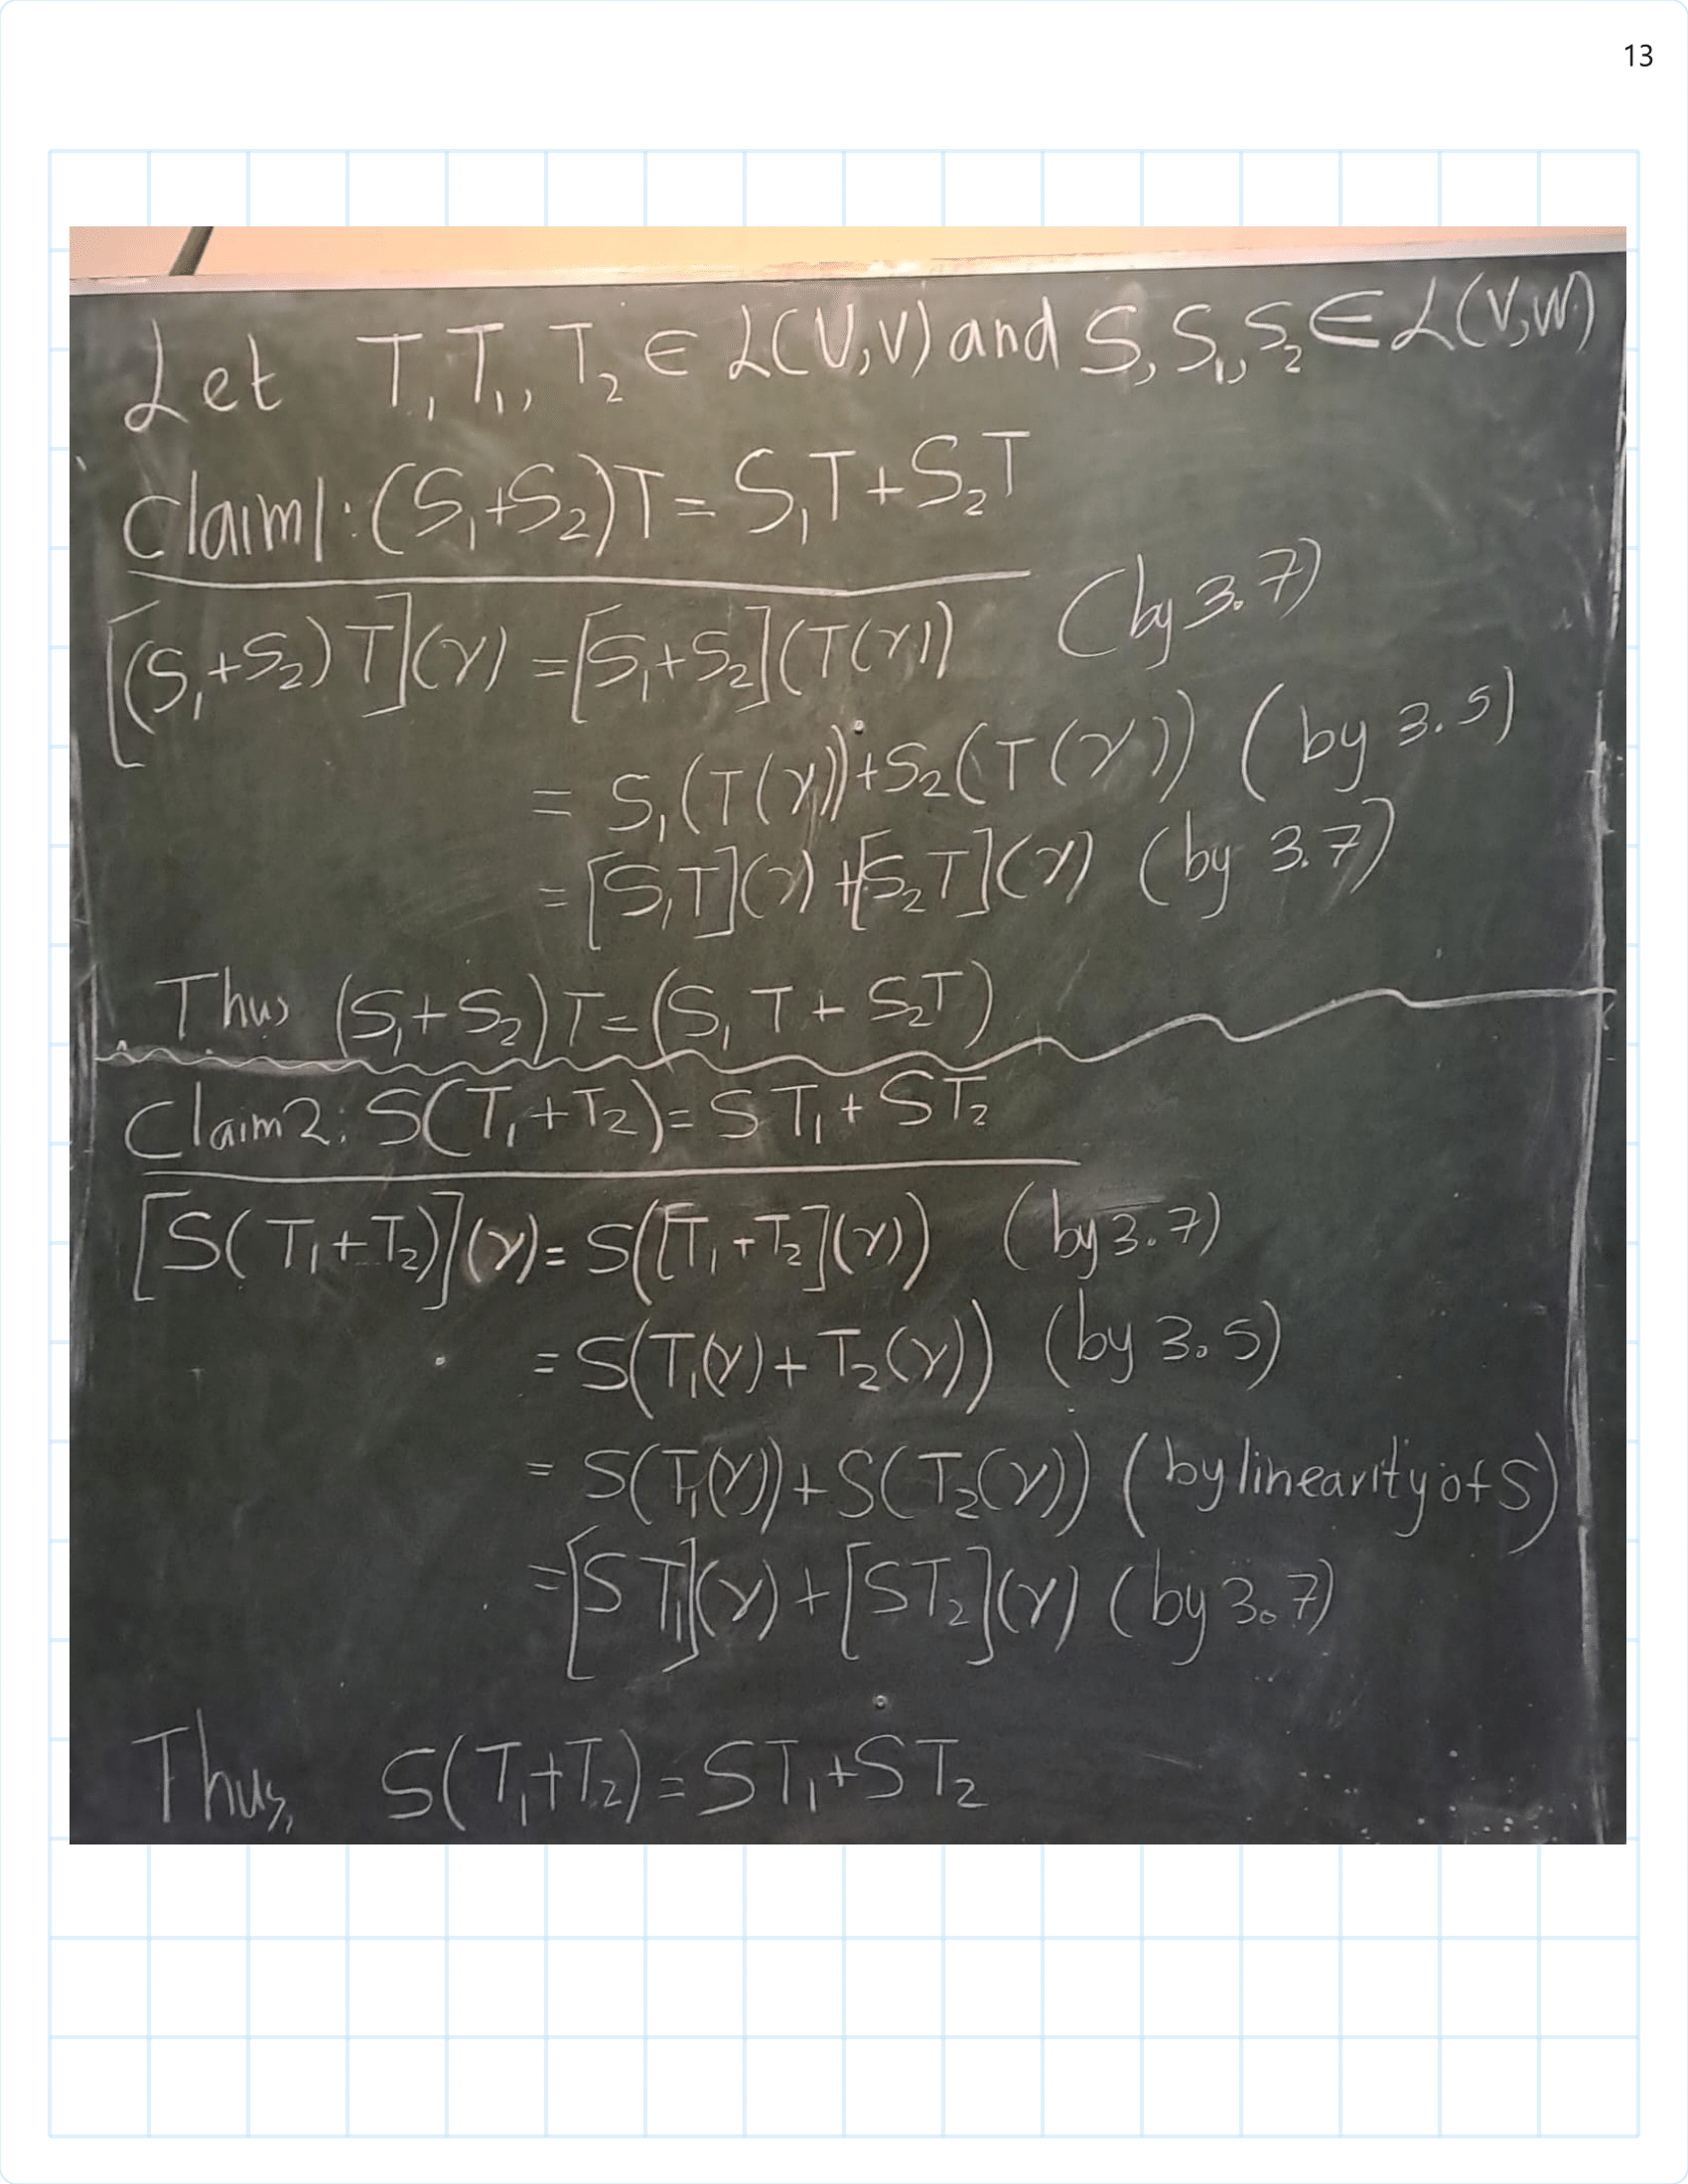 13
Let T, T₁, T₂ ∈ L(U,V) and S, S₁, S₂ ∈ L(V,W)
Claim1: (S₁+S₂)T = S₁T+S₂T
[(S₁+S₂)T](γ) = [S₁+S₂](T(γ)) (by 3.7)
= S₁(T(γ))+S₂(T(γ)) (by 3.5)
= [S₁T](γ)+[S₂T](γ) (by 3.7)
Thus (S₁+S₂)T=(S₁T + S₂T)
Claim2: S(T₁+T₂)= ST₁+ST₂
[S(T₁+T₂)](γ)= S([T₁+T₂](γ)) (by 3.7)
=S(T₁(γ)+T₂(γ)) (by 3.5)
= S(T₁(γ))+S(T₂(γ)) (by linearity of S)
=[ST₁](γ)+[ST₂](γ) (by 3.7)
Thus, S(T₁+T₂)=ST₁+ST₂